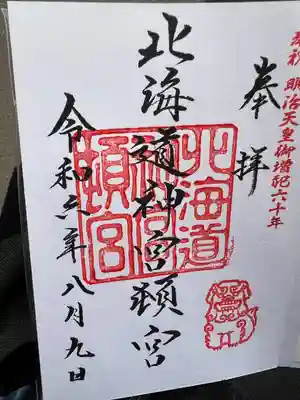 奉祝 明治天皇御増祀六十年
奉拝
北海道神宮頓宮
令和六年八月九日
北海道
神宮
頓宮